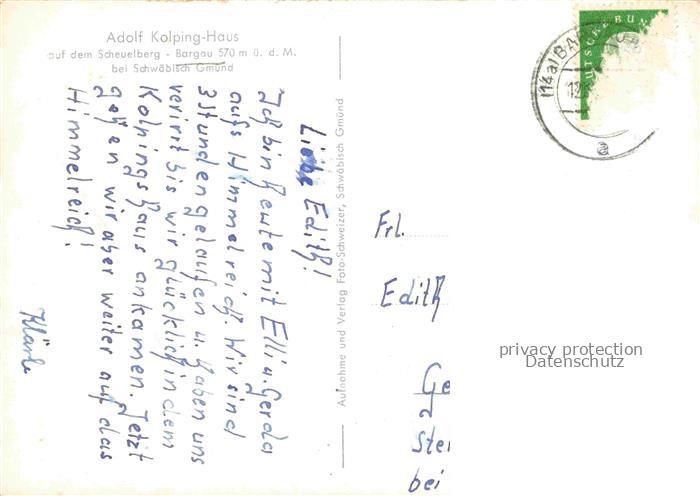 Adolf Kolping-Haus
auf dem Scheuelberg - Bargau 570 m ü. d. M.
bei Schwäbisch Gmünd
Liebe Edith!
Ich bin heute mit Elli u. Gerda
aufs Himmelreich. Wir sind
3 Stunden gelaufen u. haben uns
verirrt bis wir glücklich in dem
Kolpingshaus ankamen. Jetzt
gehen wir aber weiter auf das
Himmelreich!
Klärle
Aufnahme und Verlag Foto-Schweizer, Schwäbisch Gmünd
(14a) BA
a
UTSCHE BUN
Frl.
Edith
Ge
Ste
bei
privacy protection
Datenschutz